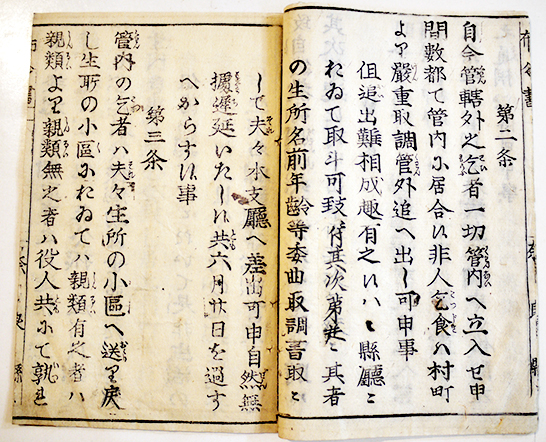 布令書
第二条
自今管轄外之乞者一切管内へ立入せ申
間敷都て管内に居合候非人乞食ハ村町
より嚴重取調管外追へ出し可申事
但追出難相成趣有之候ハヽ縣廳ニ
おゐて取斗可致付其次第并ニ其者
の生所名前年齢等委曲取調書取ニ
して夫々本支廳へ差出可申自然無
據遅延いたし候共六月廿日を過す
へからす候事
第三条
管内の乞者ハ夫々生所の小區へ送り戻
し生所の小區におゐてハ親類有之者ハ
親類より親類無之者ハ役人共にて孰れ